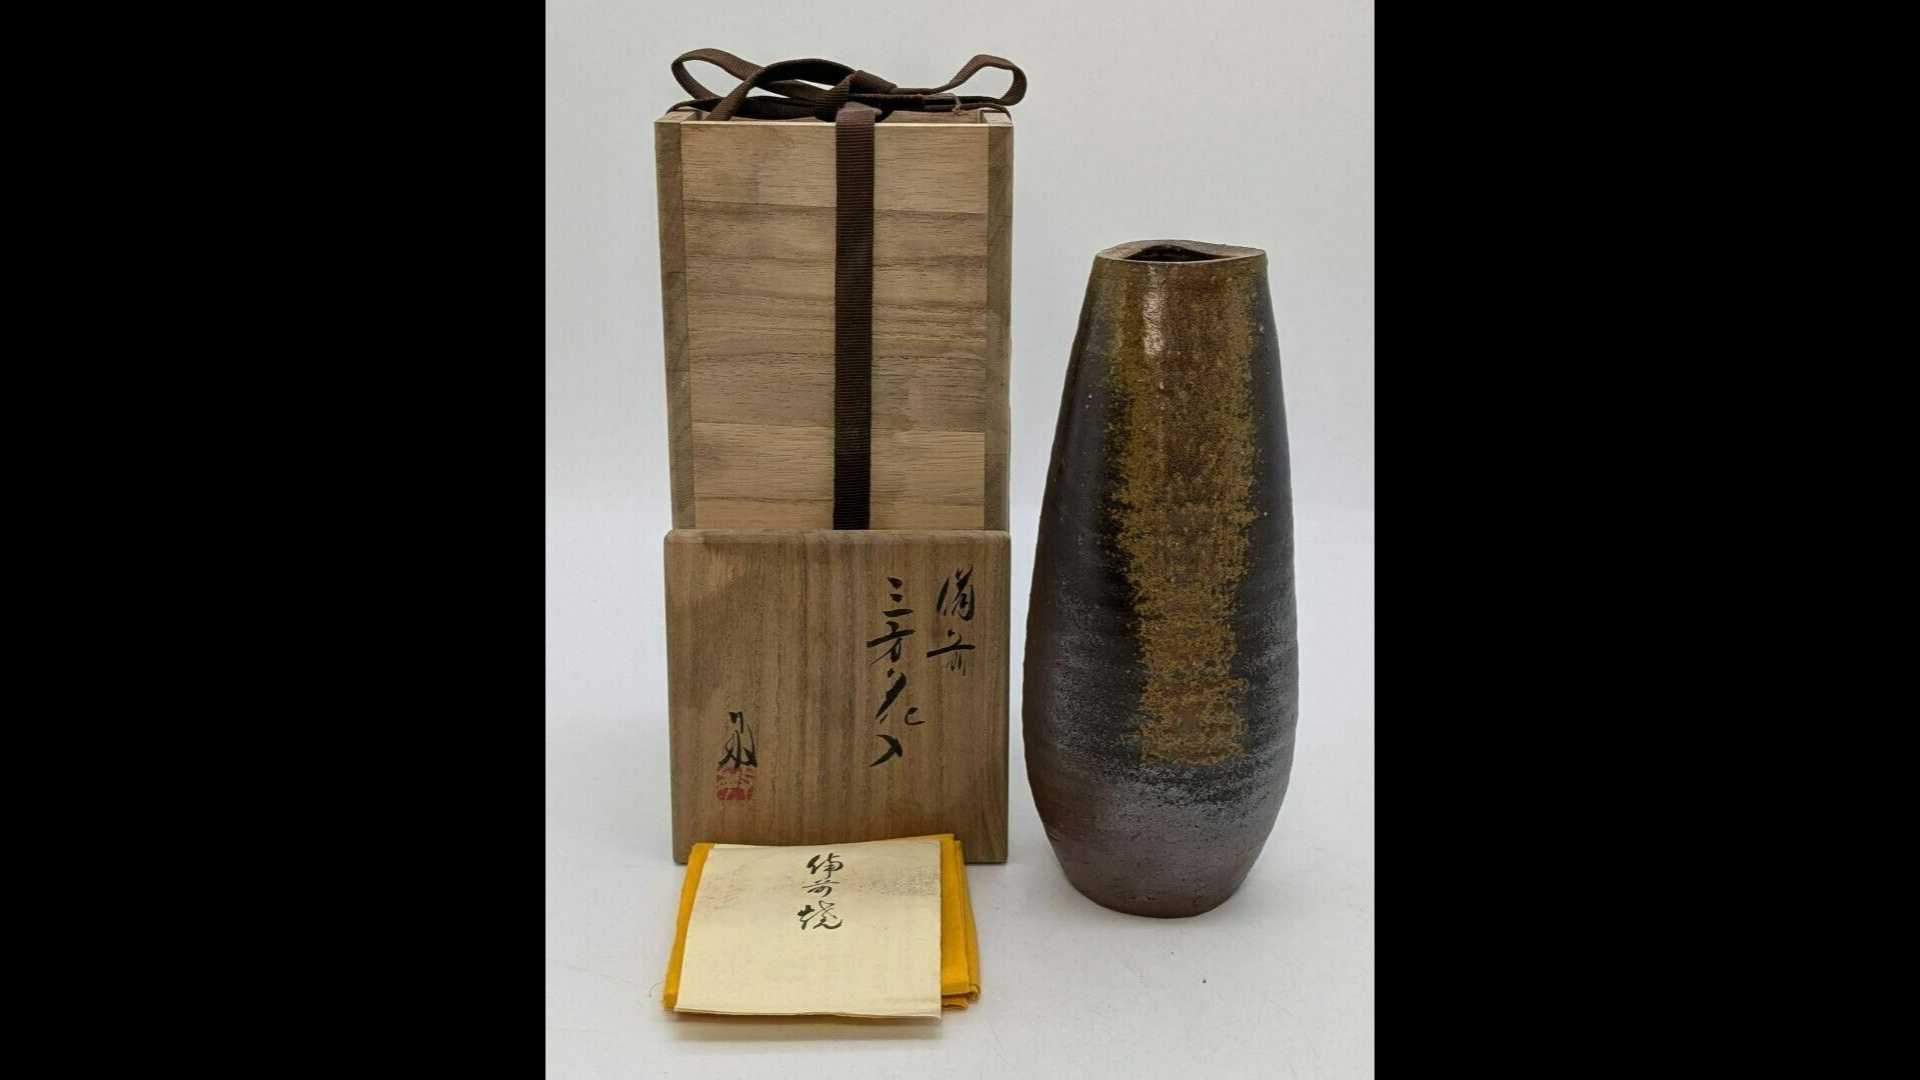 備前
三方花入
備前焼